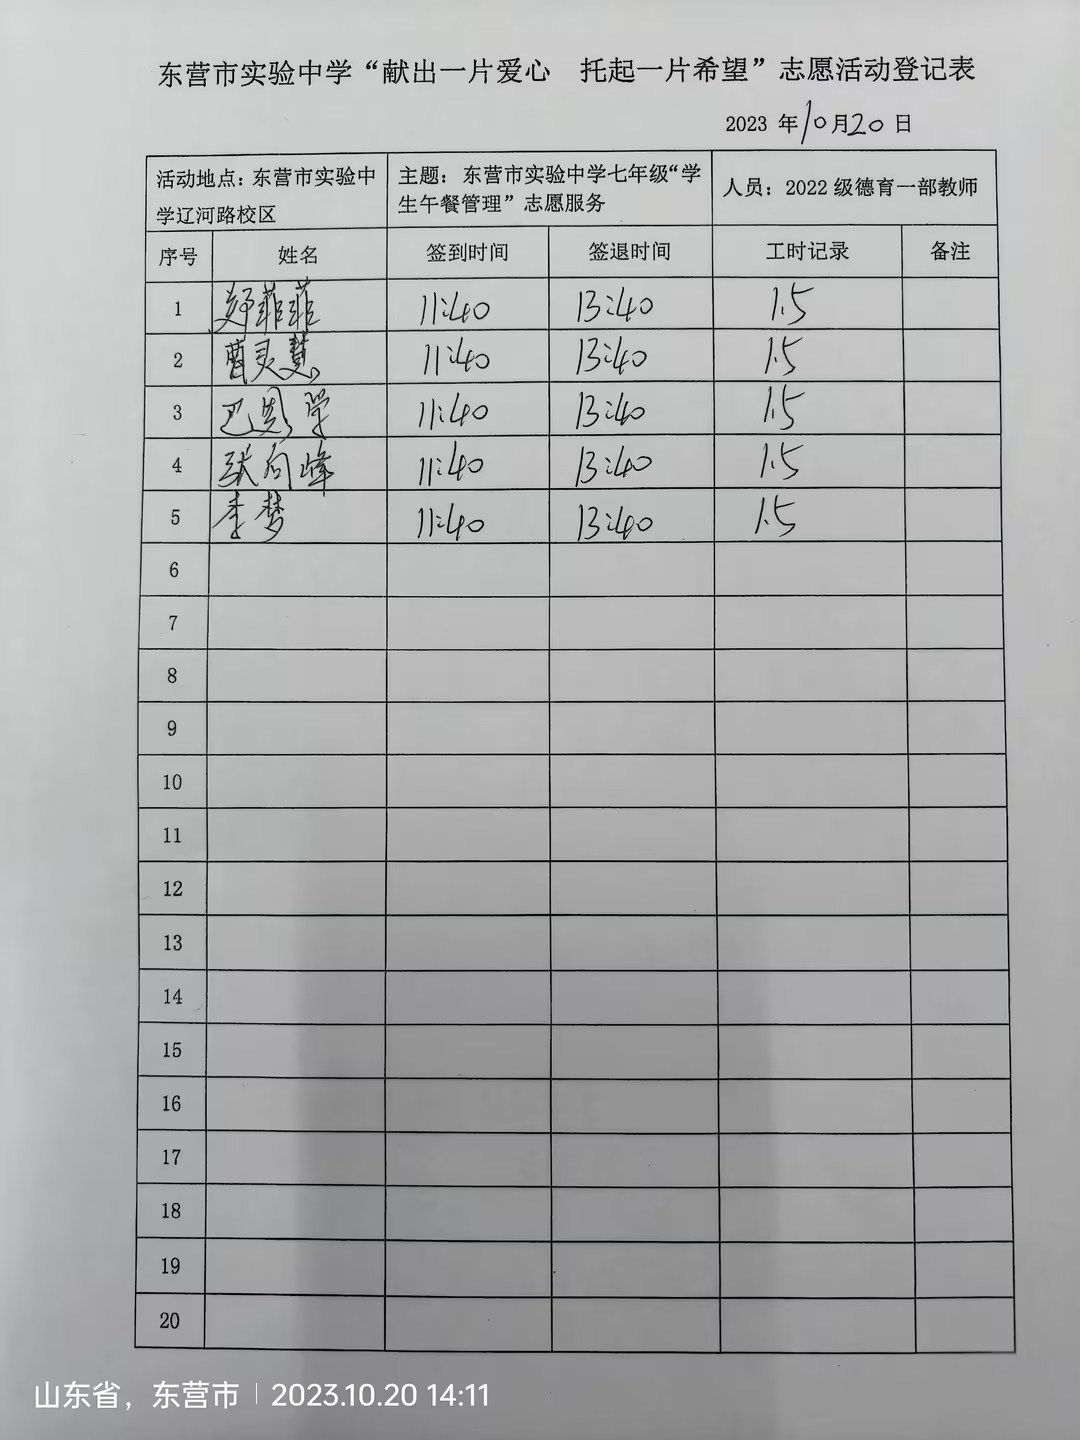 东营市实验中学“献出一片爱心 托起一片希望”志愿活动登记表
2023 年10月20日
活动地点：东营市实验中学辽河路校区 主题：东营市实验中学七年级“学生午餐管理”志愿服务 人员：2022 级德育一部教师
序号 姓名 签到时间 签退时间 工时记录 备注
1 郑菲菲 11:40 13:40 1.5
2 曹灵慧 11:40 13:40 1.5
3 巴学 11:40 13:40 1.5
4 张向峰 11:40 13:40 1.5
5 李梦 11:40 13:40 1.5
6
7
8
9
10
11
12
13
14
15
16
17
18
19
20
山东省，东营市 | 2023.10.20 14:11